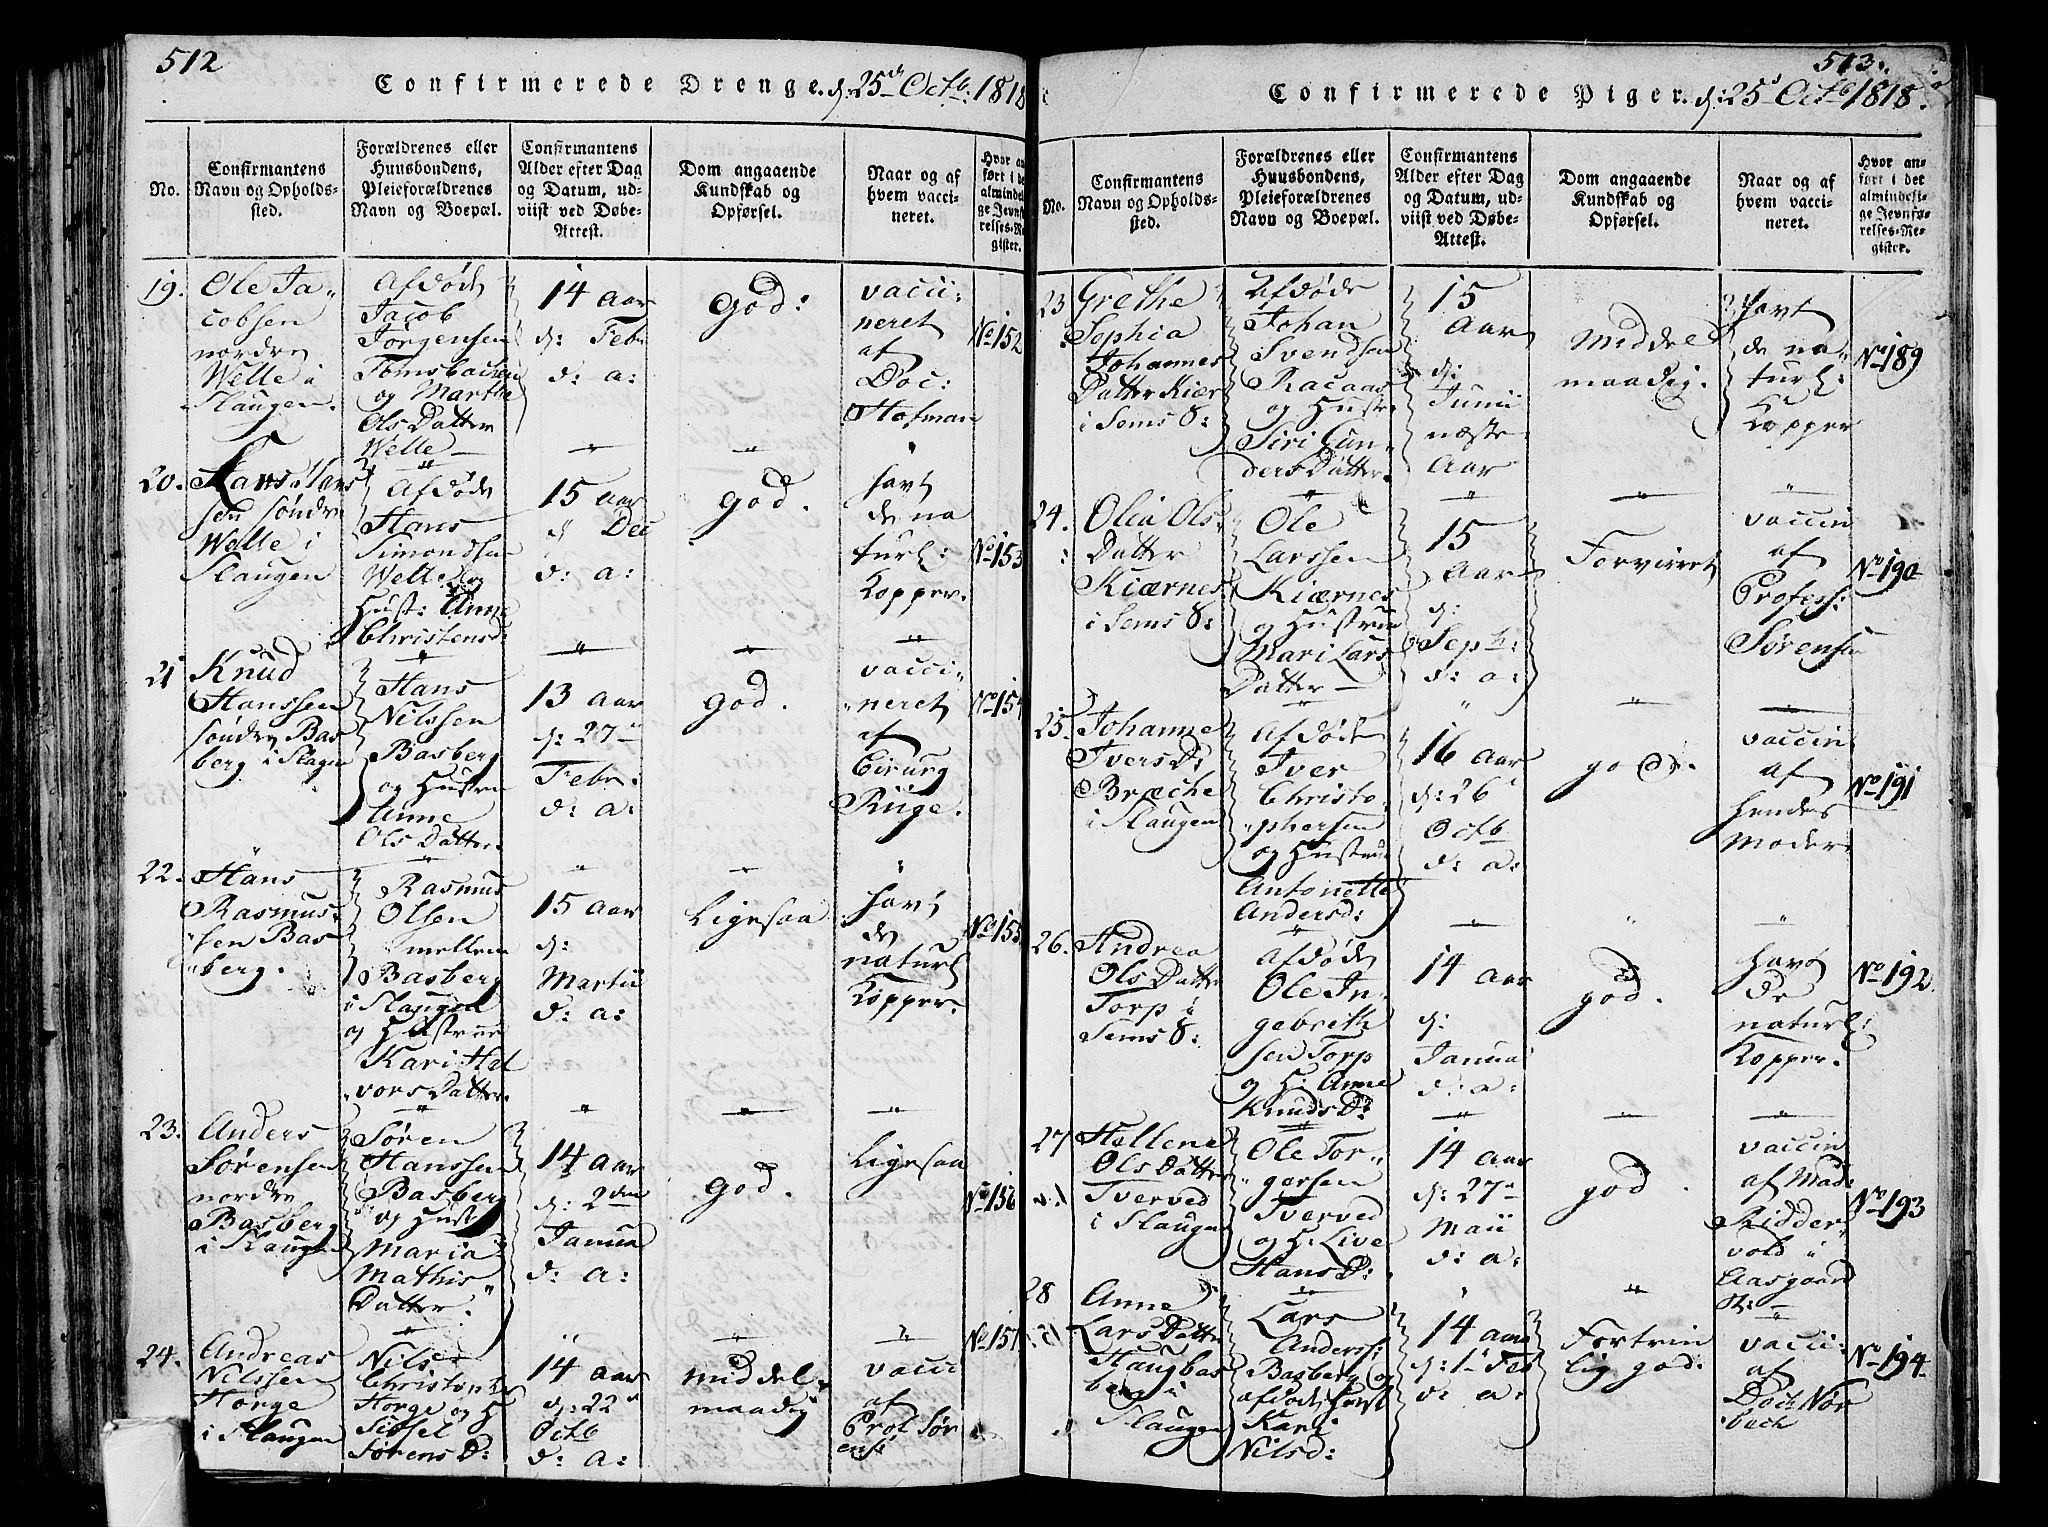 512
Confirmerede Drenge. d: 25de Octb: 1818
No.
Confirmantens
Navn og Opholds-
sted.
Forældrenes eller
Huusbondens,
Pleieforældrenes
Navn og Boepæl.
Confirmantens
Alder efter Dag
og Datum, ud-
viist ved Døbe-
Attest.
Dom angaaende
Kundskab og
Opførsel.
Naar og af
hvem vacci-
neret.
19.
Ole Ja-
cobsen
nordre
Welle i
Slaugen.
Afdøde
Jacob
Jørgensen
Tomsbachen
og Marthe
OlsDatter
Welle
14 Aar
d: Febr
d: a:
God:
vacci:
neret
af
Doc:
Hofman
No 152
20.
Hans Hans
sen søndre
Welle i
Slaugen
Afdøde
Hans
Simondsen
Welle og
Hust: Anne
Christensd:
15 Aar
d Dec
d: a:
god.
havt
de na
turl:
Kopper.
No 153
21
Knud
Hanssen
søndre Bas
berg i Slagen
Hans
Nilssen
Basberg
og Hustru
Anne
OlsDatter.
13 Aar
d: 27
Febr.
d: a:
god.
vacci-
neret
af
Cirurg
Riige.
No 154
22.
Hans
Rasmus-
sen Bas
berg.
Rasmus
Olsen
mellem
Basberg
i Slaugen
og Hustrue
Kari Hal
vorsDatter.
15 Aar
d:
Martii
d: a:
Ligesaa
havt
de
naturl
Kopper.
No 155
23.
Anders
Sørensen
nordre
Basberg
i Slaugen
Søren
Hanssen
Basberg
og Hust
Maria
Mathis
Datter.
14 Aar
d: 2den
Janua
d: a:
god.
Ligesaa
No 156
24.
Andreas
Nilssen
Horge
i Slaugen
Nils
Horge og H
Sissel
Sørens D:
14 Aar
d: 22
Octb
d: a:
middel-
maadig
vacci
af
Prof Sør
ens
No 157
513.
Confirmerede Piger. d: 25d Octb 1818.
No.
Confirmantens
Navn og Opholds-
sted.
Forældrenes eller
Huusbondens,
Pleieforældrenes
Navn og Boepæl.
Confirmantens
Alder efter Dag
og Datum, ud-
viist ved Døbe-
Attest.
Dom angaaende
Kundskab og
Opførsel.
Naar og af
hvem vacci-
neret.
Hvor an-
ført i det
almindeli-
ge Jevnfø-
relses-Re-
gister.
23
Grethe
Sophia
Johannes
Datter Kiær
i Sems S:
Afdøde
Johan
Svendsen
Racaas
og Hustr.
Siri Gun-
dersDatter.
15
Aar
d:
Junii
næste
Aar
Middel
maadig.
Havt
de na-
turl:
Kopper
No 189
24.
Olia Ols
Datter
Kiærnes
i Sems S:
Ole
Larssen
Kiærnes
og Hustrue
Mari Lars
Datter
15
Aar
d:
Septb:
d: a:
Forvirret
vaccin
af
Profess:
Sørensen
No 190
25.
Johanne
IversD:
Bræche
i Slaugen
Afdøde
Iver
Christo-
phersen
og Hustrue
Antonette
Andersd:
16 Aar
d: 26
Octb
d: a:
god.
vaccin
af
hendes
Moder.
No 191
26.
Andrea
OlsDatter
Torp i
Sems S:
Afdøde
Ole In-
gebreth
sen Torp
og H: Anne
KnudsD:
14 Aar
d:
Janua
d: a:
god.
havt
de
naturl:
Kopper.
No 192.
27
Hellene
OlsDatter
Tverved
i Slaugen
Ole Tor-
gersen
Tverved
og H: Live
HansD:
14 Aar
d: 27
Maii
d: a:
god.
vaccin
af Mad:
Ridder
vold i
Aasgaard
St:
No 193
28
Anne
LarsDatter
Haugbas
berg i
Slaugen
Lars
Anderss:
Basberg og
afdøde Hust
Kari
Nilsd:
14 Aar
d: 1 Feb
d: a:
Fortrin
lig god.
vacci:
af
Doct. Nør
bech
No 194